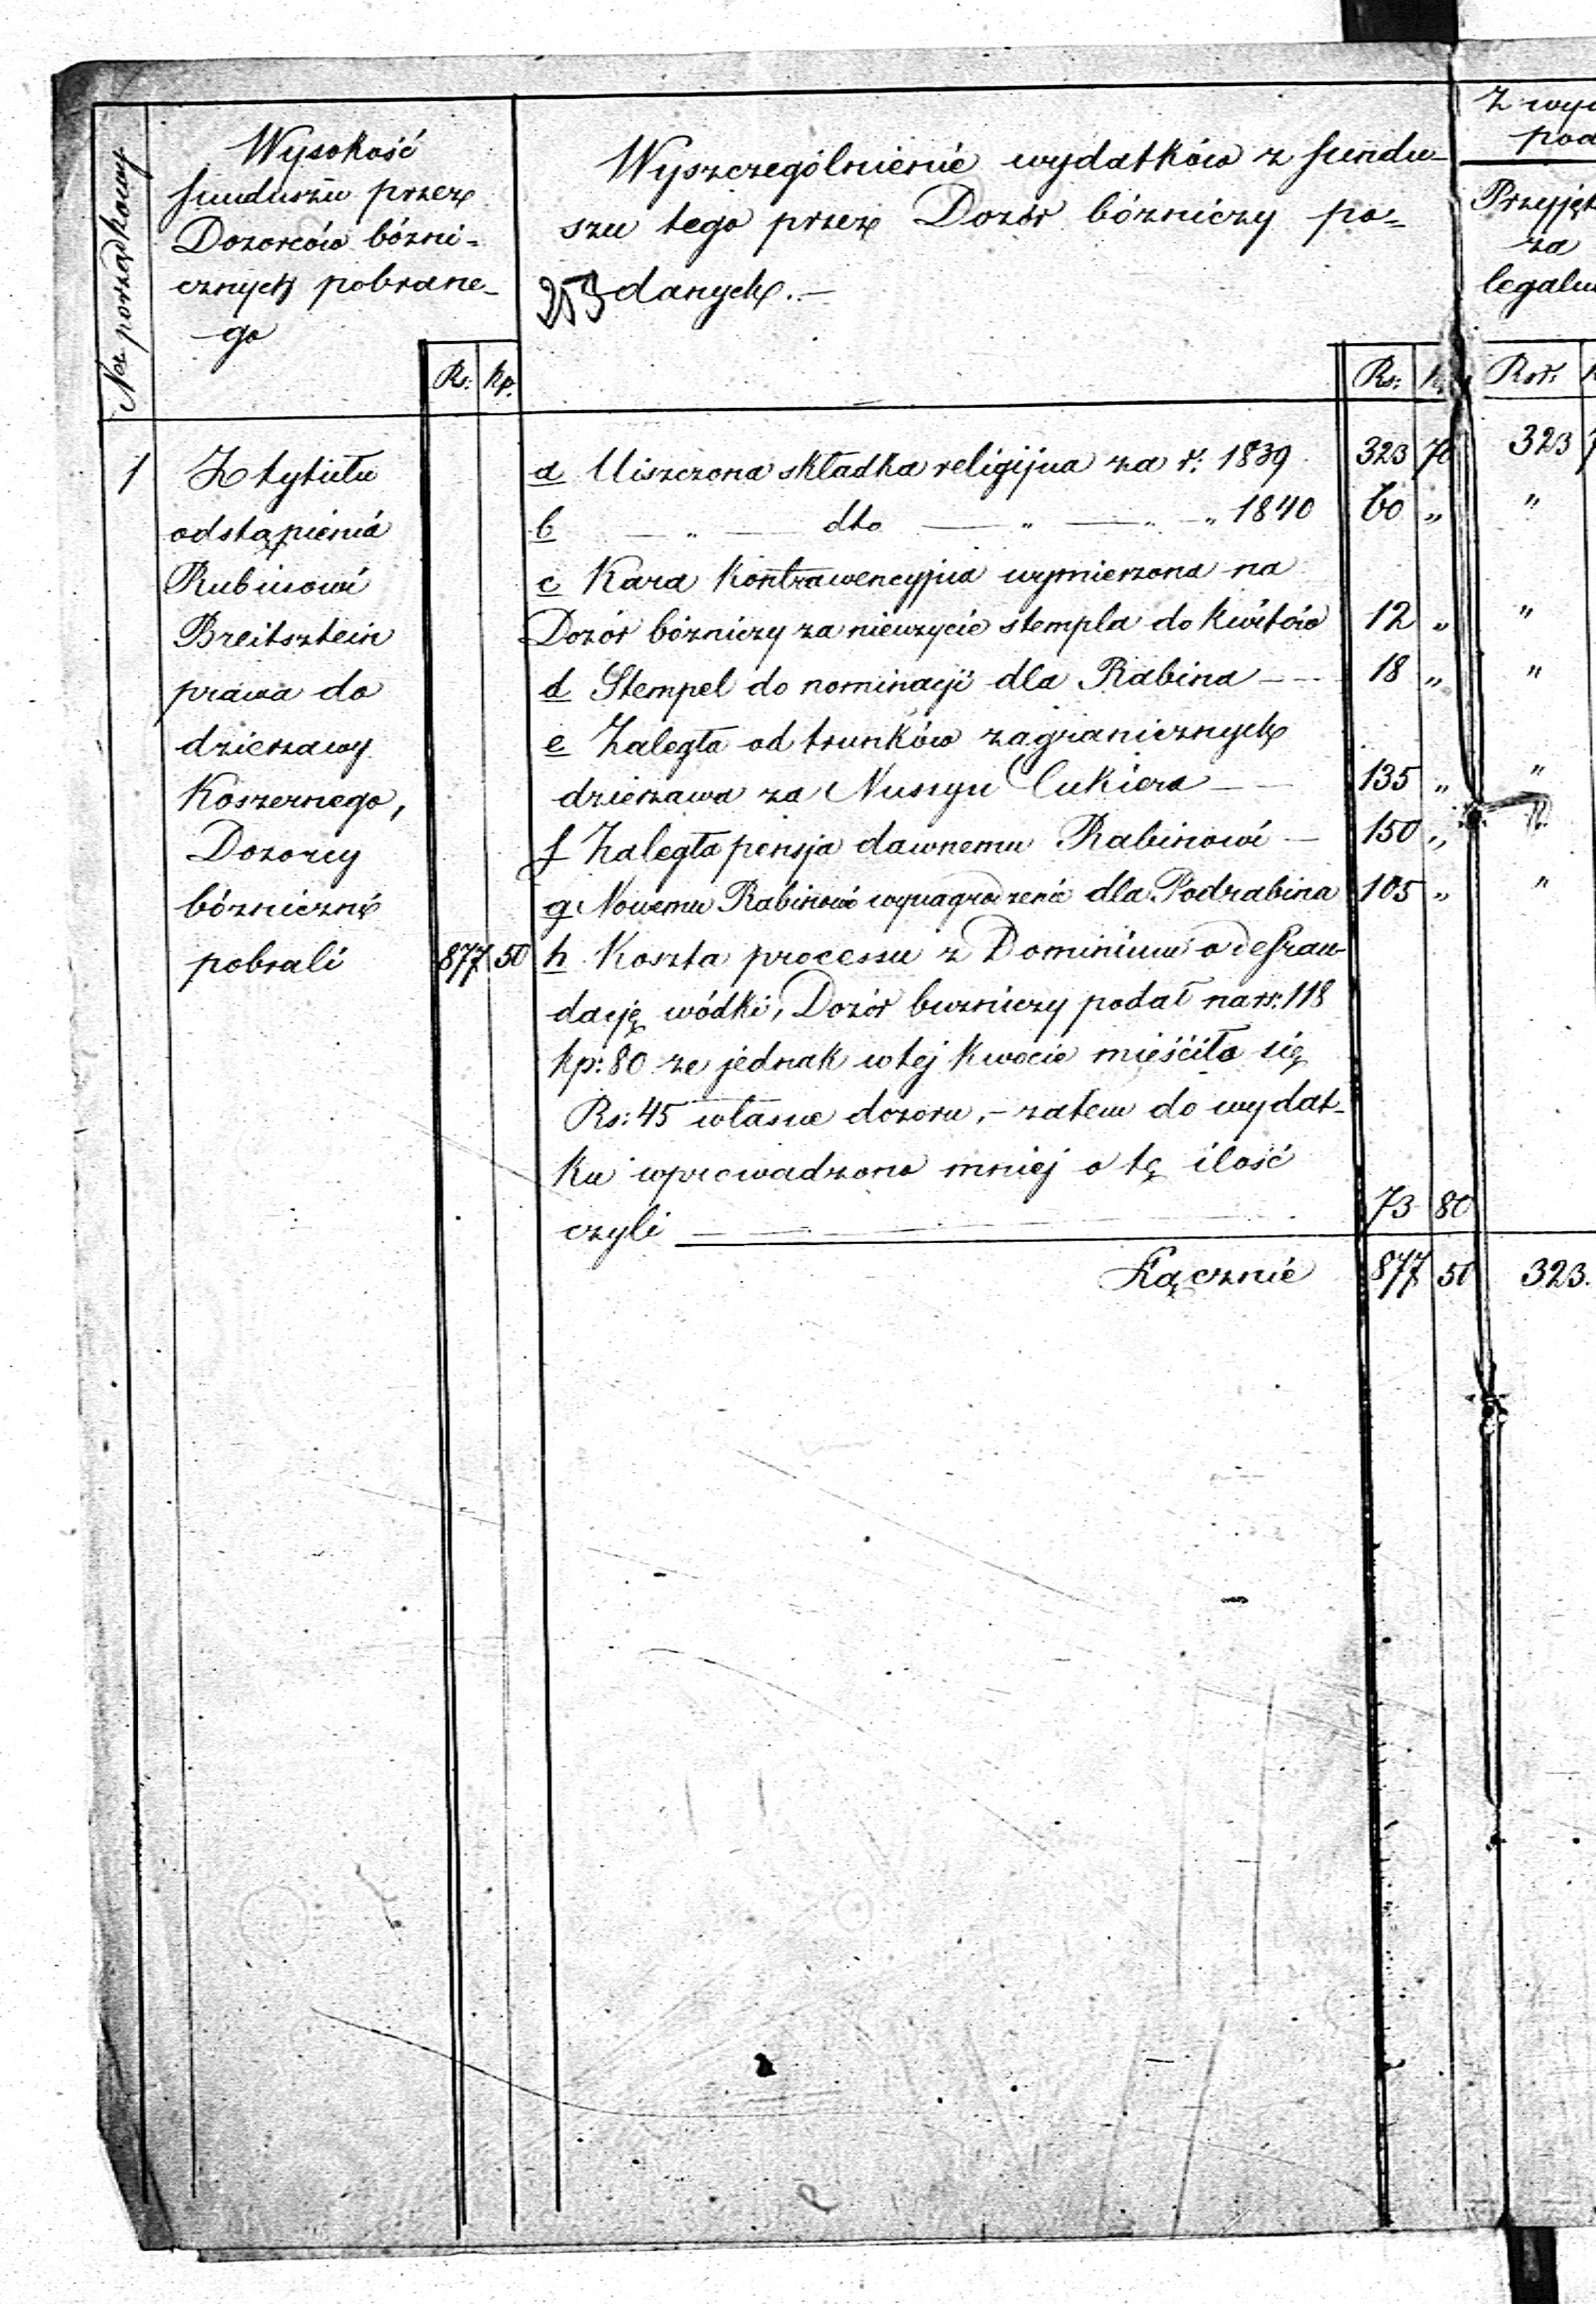 Ner porządkowy
Wysokość
funduszu przez
Dozorców bózni-
cznych pobrane-
go
Rs: Kp.
Wyszczególnienie wydatków z fundu-
szu tego przez Dozór bózniczy po-
253 danych.—
Rs:
Przyjęt
za
legaln
Rsr:
1 Z tytułu
odstąpienia
Rubinowi
Breitsztein
prawa do
dzierzawy
Koszernego,
Dozorcy
bózniczni
pobrali 877 50
a Uiszczona składka religijna za r: 1839 323 70 323
b — „ — dto — „ — „ — „ 1840 60 „ „
c Kara Kontrawencyjna wymierzona na
Dozór bózniczy za nieuzycie stempla do kwitów 12 „ „
d Stempel do nominacji dla Rabina — 18 „ „
e Zaległa od trunków zagranicznych
dzierzawa za Nusyn Cukiera — 135 „ „
f Zaległa pensja dawnemu Rabinowi — 150 „ „
g Nowemu Rabinowi wynagrodzenie dla Podrabina 105 „ „
h Koszta processu z Dominium o defrau-
dację wódki, Dozór buzniczy podał na rs: 118
kp: 80 ze jednak w tej kwocie mieściło się
Rs: 45 własne dozoru, – zatem do wydat-
ku wprowadzono mniej o tę ilość
czyli — 73 80
Łącznie 877 50 323.